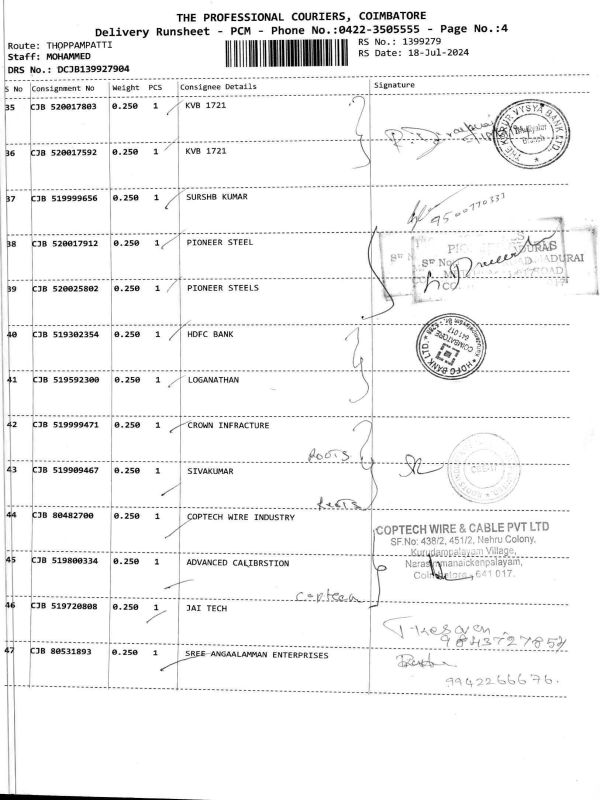 THE PROFESSIONAL COURIERS, COIMBATORE
Delivery Runsheet - PCM - Phone No.:0422-3505555 - Page No.:4
Route: THOPPAMPATTI
RS No.: 1399279
Staff: MOHAMMED
RS Date: 18-Jul-2024
DRS No.: DCJB139927904
S No Consignment No Weight PCS Consignee Details Signature
35 CJB 520017803 0.250 1 KVB 1721
THE KARUR VYSYA BANK LTD.
36 CJB 520017592 0.250 1 KVB 1721
37 CJB 519999656 0.250 1 SURSHB KUMAR
9500770337
38 CJB 520017912 0.250 1 PIONEER STEEL
39 CJB 520025802 0.250 1 PIONEER STEELS
40 CJB 519302354 0.250 1 HDFC BANK
HDFC BANK LTD.
COIMBATORE
641 017
41 CJB 519592300 0.250 1 LOGANATHAN
42 CJB 519999471 0.250 1 CROWN INFRACTURE
Roots
43 CJB 519909467 0.250 1 SIVAKUMAR
Roots
44 CJB 80482700 0.250 1 COPTECH WIRE INDUSTRY
COPTECH WIRE & CABLE PVT LTD
SF.No: 438/2, 451/2, Nehru Colony,
Kurudampalayam Village,
Narasimmanaickenpalayam,
Coimbatore, 641 017.
45 CJB 519800334 0.250 1 ADVANCED CALIBRSTION
coptech
46 CJB 519720808 0.250 1 JAI TECH
9843727852
47 CJB 80531893 0.250 1 SREE ANGAALAMMAN ENTERPRISES
9942266676.